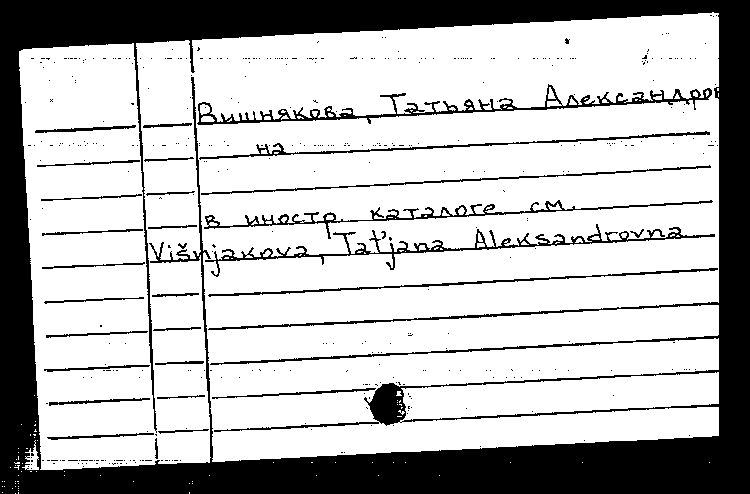 Вишнякова, Татьяна Александров
на
в иностр. каталоге см.
Višnjakova, Tat'jana Aleksandrovna